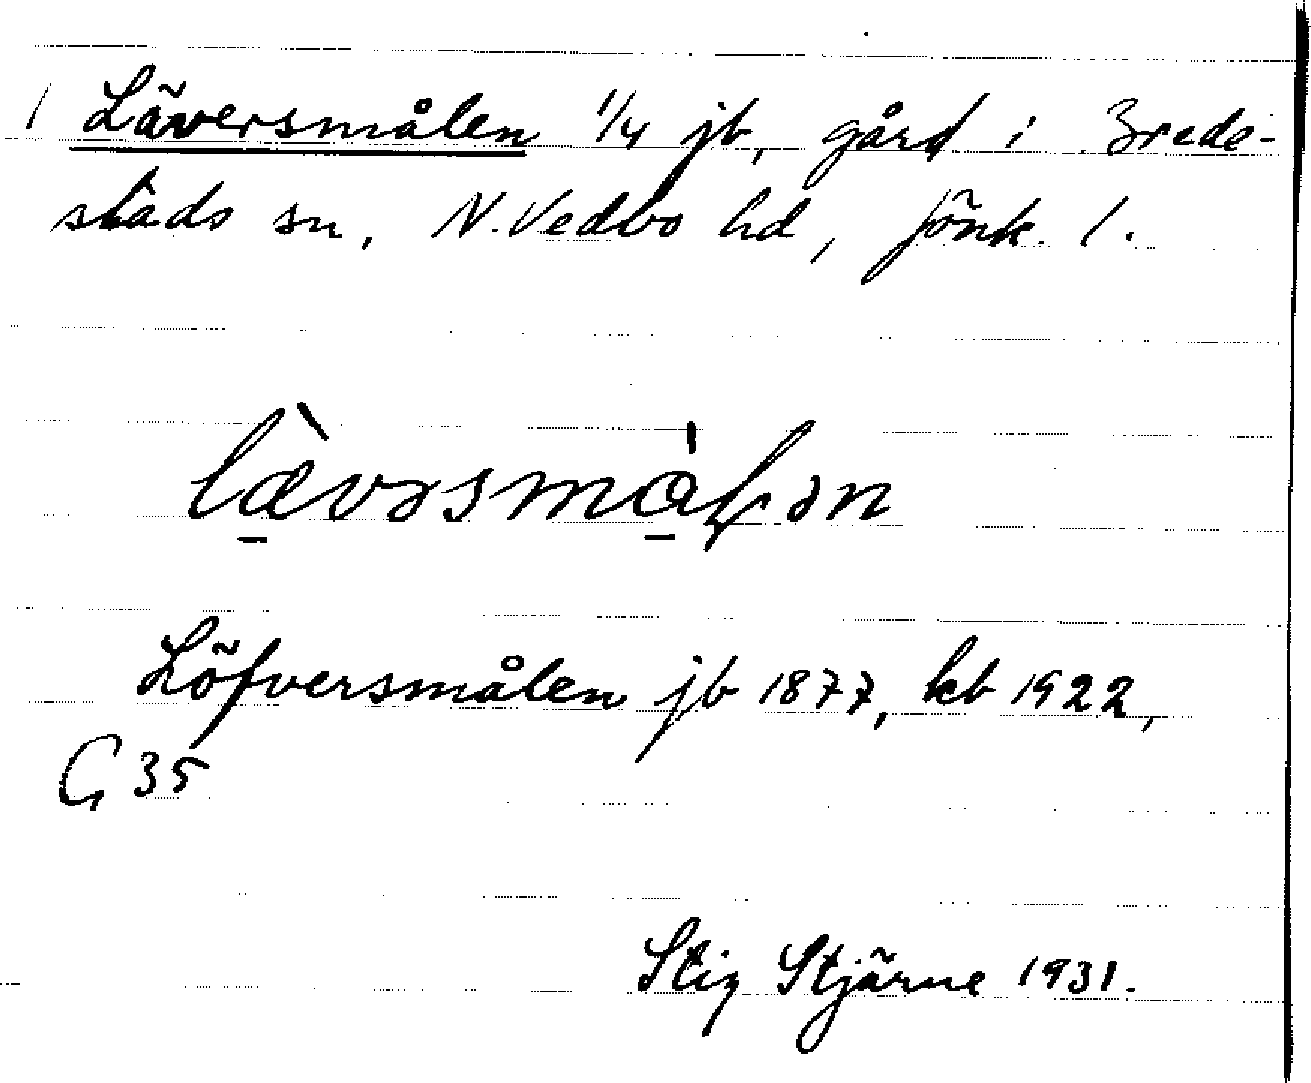 / Läversmålen 1/4 jb, gård i Brede-
stads sn, N. Vedbo hd, Jönk. l.
lævəsmåɽən
Löfversmålen jb 1877, kb 1922,
G 35
Stig Stjärne 1931.